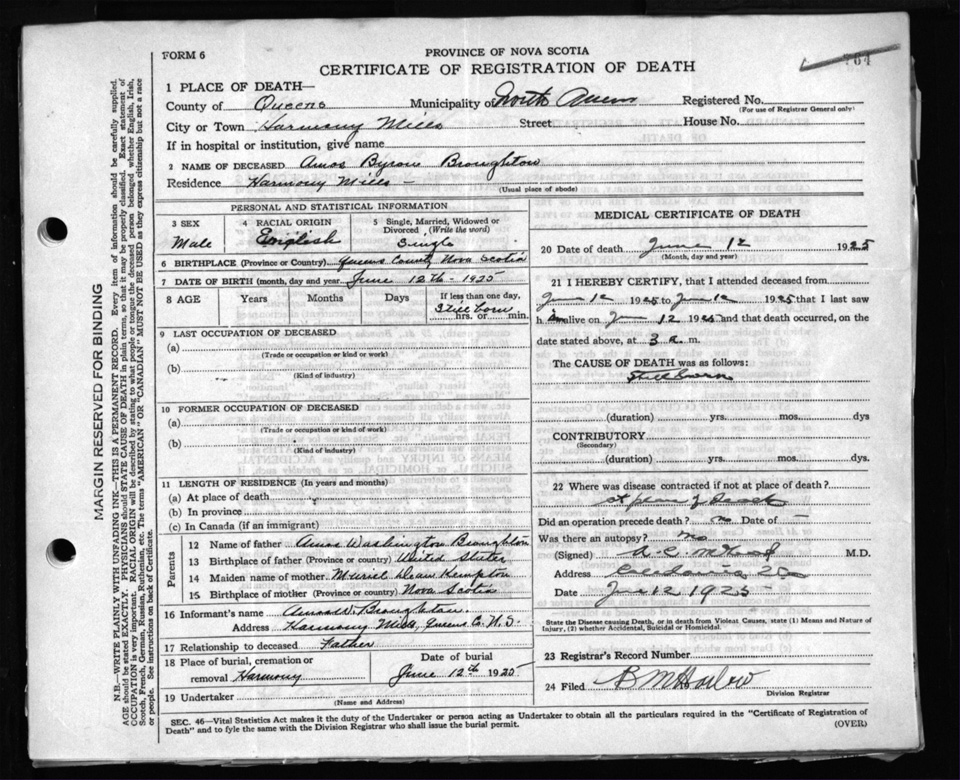 PROVINCE OF NOVA SCOTIA
FORM 6
CERTIFICATE OF REGISTRATION OF DEATH
1 PLACE OF DEATH—
County of Queens Municipality of North Registered No.
(For use of Registrar General only)
City or Town Harmony Mills Street House No.
If in hospital or institution, give name
2 NAME OF DECEASED Amos Byron Broughton
Residence Harmony Mills (Usual place of abode)
PERSONAL AND STATISTICAL INFORMATION
3 SEX Male
4 RACIAL ORIGIN English
5 Single, Married, Widowed or Divorced (Write the word) Single
6 BIRTHPLACE (Province or Country) Queens County Nova Scotia
7 DATE OF BIRTH (month, day and year) June 12th - 1925
8 AGE Years Months Days If less than one day, hrs. or min. Still born
9 LAST OCCUPATION OF DECEASED
(a)
(Trade or occupation or kind of work)
(b)
(Kind of industry)
10 FORMER OCCUPATION OF DECEASED
(a)
(Trade or occupation or kind of work)
(b)
(Kind of industry)
11 LENGTH OF RESIDENCE (In years and months)
(a) At place of death
(b) In province
(c) In Canada (if an immigrant)
Parents
12 Name of father Amos Washington Broughton
13 Birthplace of father (Province or country) United States
14 Maiden name of mother Muriel Dean Kempton
15 Birthplace of mother (Province or country) Nova Scotia
16 Informant's name Amos W. Broughton.
Address Harmony Mills, Queens Co. N. S.
17 Relationship to deceased Father
18 Place of burial, cremation or removal Harmony
Date of burial June 12th 1925
19 Undertaker
(Name and Address)
MEDICAL CERTIFICATE OF DEATH
20 Date of death June 12 1925
(Month, day and year)
21 I HEREBY CERTIFY, that I attended deceased from
June 12 1925 to June 12 1925 that I last saw
h alive on June 12 1925 and that death occurred, on
date stated above, at 3 a. m.
The CAUSE OF DEATH was as follows:
Still born
(duration) yrs. mos. dys
CONTRIBUTORY
(Secondary)
(duration) yrs. mos. dys
22 Where was disease contracted if not at place of death?
At place of death
Did an operation precede death? no Date of —
Was there an autopsy? no
(Signed) M.D.
Address Caledonia
Date June 12 1925
State the Disease causing Death, or in death from Violent Causes, state (1) Means and Nature of
Injury, (2) whether Accidental, Suicidal or Homicidal.
23 Registrar's Record Number
24 Filed B M Harlow
Division Registrar
SEC. 46—Vital Statistics Act makes it the duty of the Undertaker or person acting as Undertaker to obtain all the particulars required in the "Certificate of Registration of
Death" and to fyle the same with the Division Registrar who shall issue the burial permit. (OVER)
MARGIN RESERVED FOR BINDING
N.B.—WRITE PLAINLY WITH UNFADING INK—THIS IS A PERMANENT RECORD. Every item of information should be carefully supplied.
AGE should be stated EXACTLY. PHYSICIANS should STATE CAUSE OF DEATH in plain terms, so that it may be properly classified. Exact statement of
OCCUPATION is very important. RACIAL ORIGIN will be described by stating to what people or tongue the deceased person belonged whether English, Irish,
Scotch, French, German, Russian, Ruthenian, etc. The terms "AMERICAN" or "CANADIAN" MUST NOT BE USED as they express citizenship but not a race
or people. See instructions on back of Certificate.